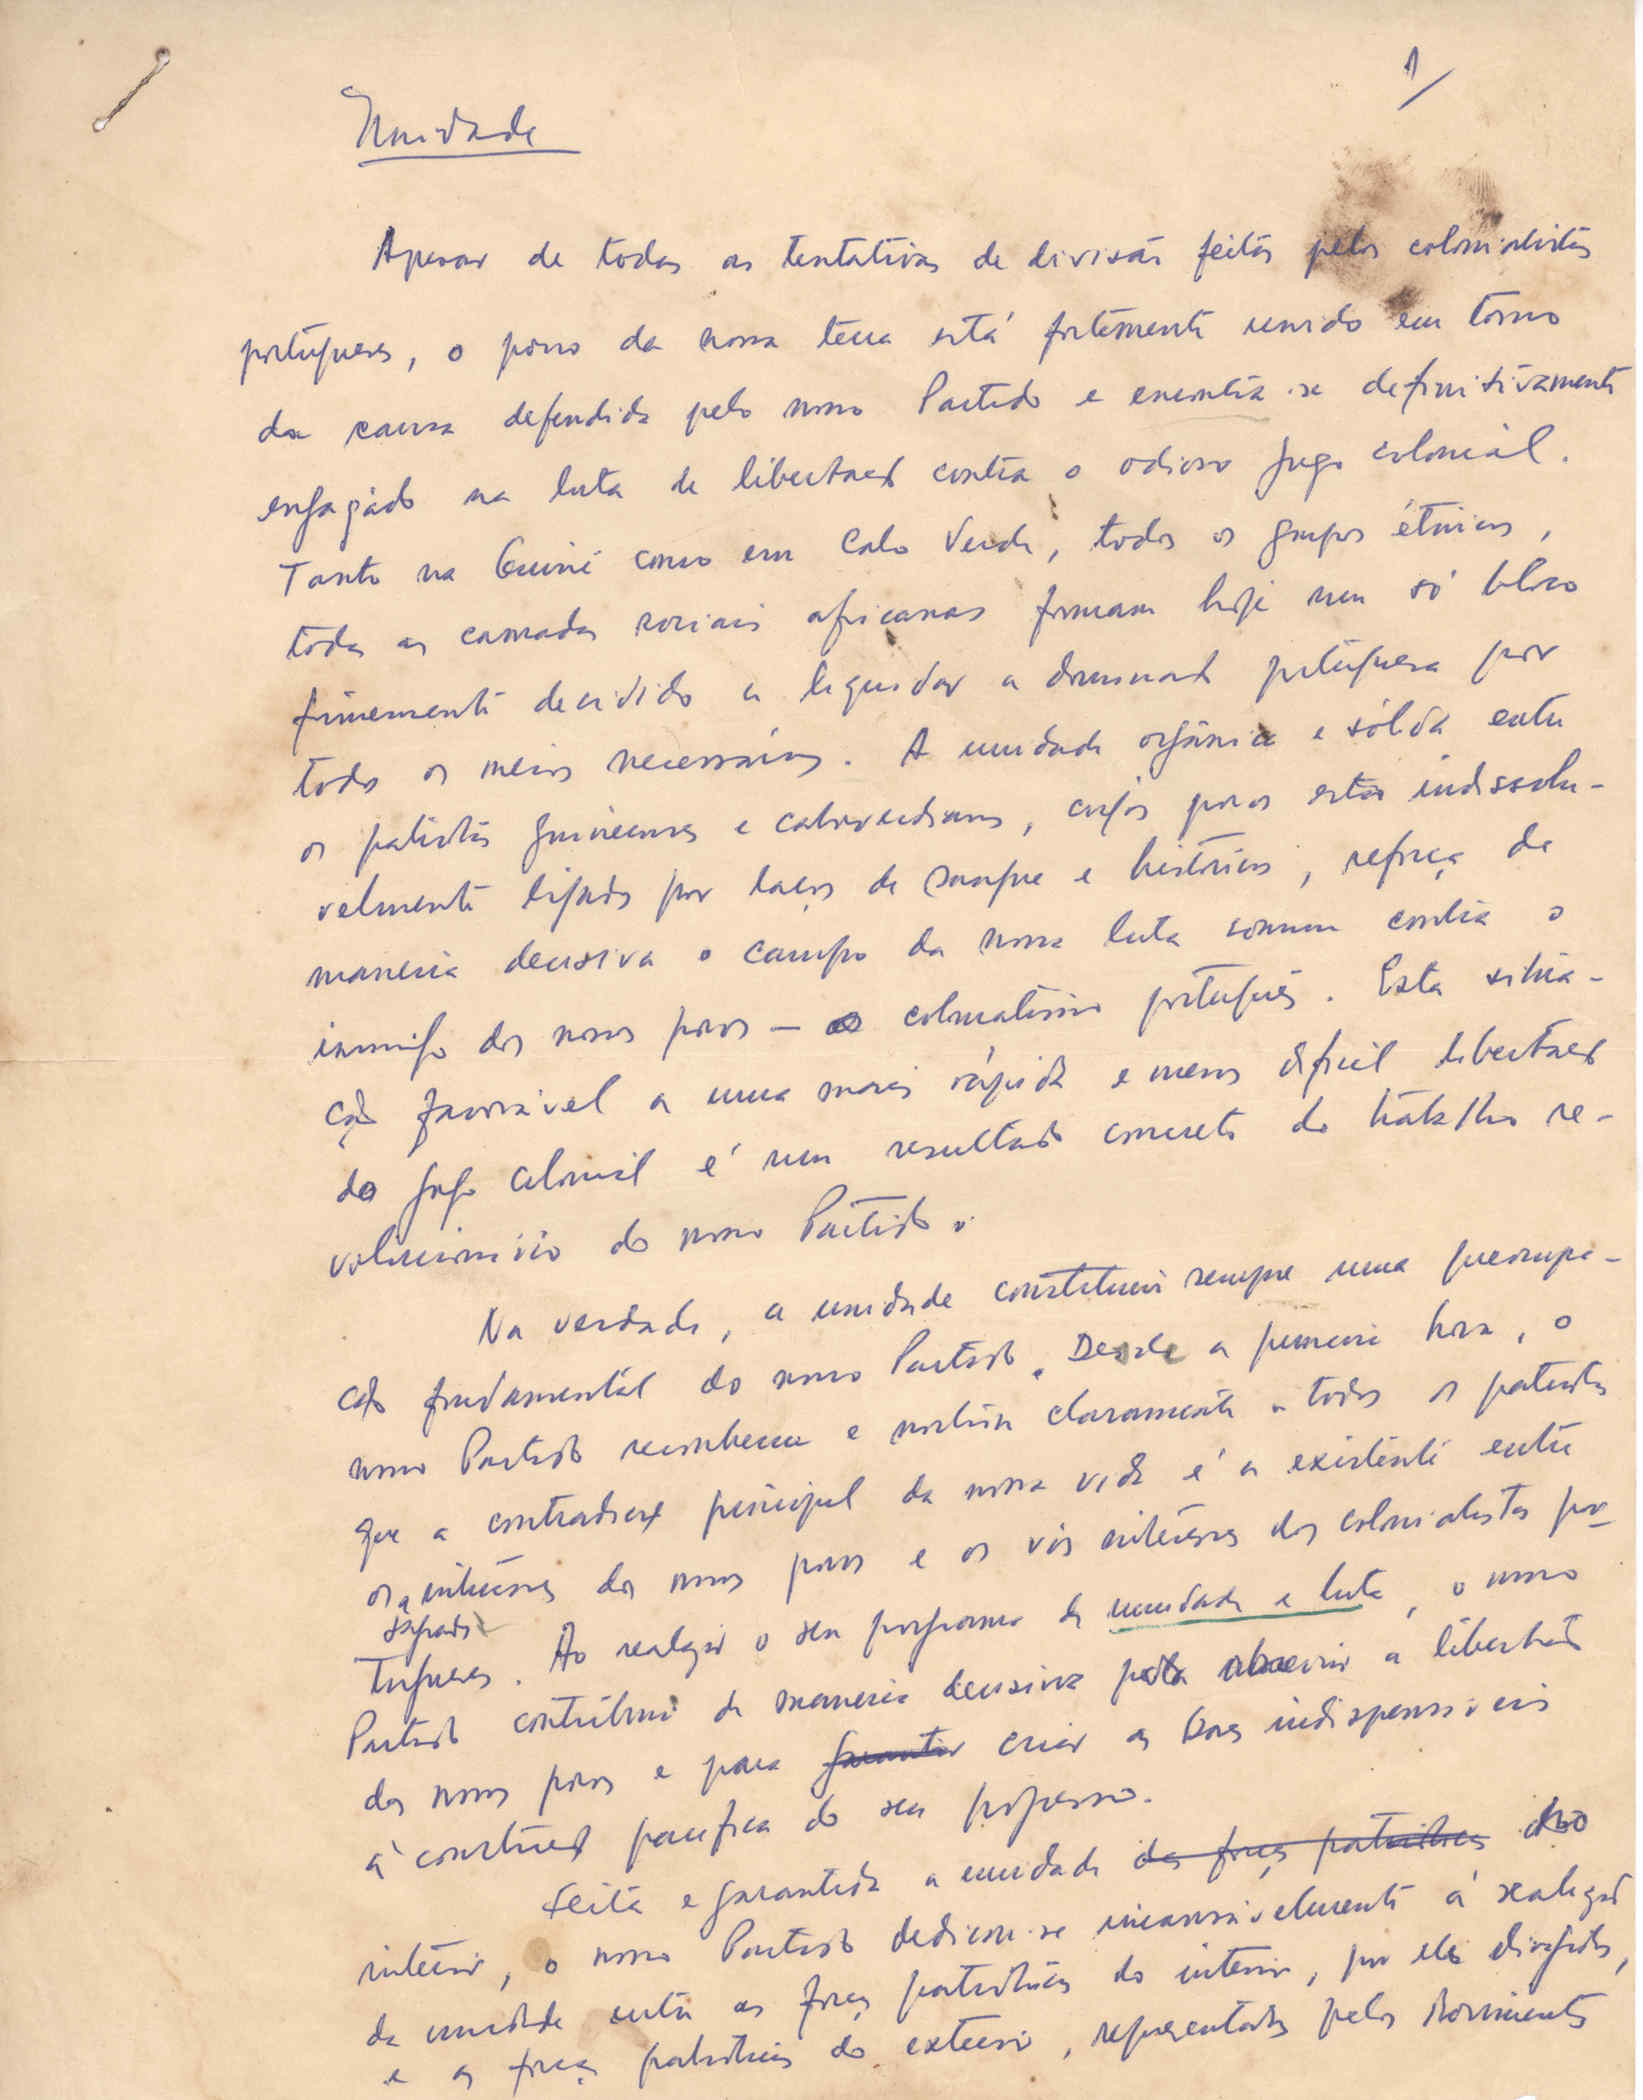 1/
Unidade
Apesar de todas as tentativas de divisão feitas pelos colonialistas
portugueses, o povo da nossa terra está fortemente unido em torno
da causa defendida pelo nosso Partido e encontra-se definitivamente
engajado na luta de libertação contra o odioso jugo colonial.
Tanto na Guiné como em Cabo Verde, todos os grupos étnicos,
todas as camadas sociais africanas formam hoje um só bloco
firmemente decidido a liquidar a dominação portuguesa por
todos os meios necessários. A unidade orgânica e sólida entre
os patriotas guineenses e caboverdianos, cujos povos estão indissolu-
velmente ligados por laços de sangue e históricos, reforça de
maneira decisiva o campo da nossa luta comum contra o
inimigo dos nossos povos — o colonialismo português. Esta situa-
ção favorável a uma mais rápida e menos difícil libertação
do jugo colonial é um resultado concreto do trabalho re-
volucionário do nosso Partido.
Na verdade, a unidade constituiu sempre uma preocupa-
ção fundamental do nosso Partido. Desde a primeira hora, o
nosso Partido reconheceu e mostrou claramente a todos os patriotas
que a contradição principal da nossa vida é a existente entre
os interesses dos nossos povos e os vis interesses dos colonialistas por-
sagrados
tugueses. Ao realizar o seu programa de unidade e luta, o nosso
Partido contribuiu de maneira decisiva para a libertação
dos nossos povos e para garantir criar as bases indispensáveis
à construção pacífica do seu progresso.
Feita e garantida a unidade das forças patrióticas no
interior, o nosso Partido dedicou-se incansavelmente à realização
da unidade entre as forças patrióticas do interior, por ele dirigidas,
e as forças patrióticas do exterior, representadas pelos Movimentos